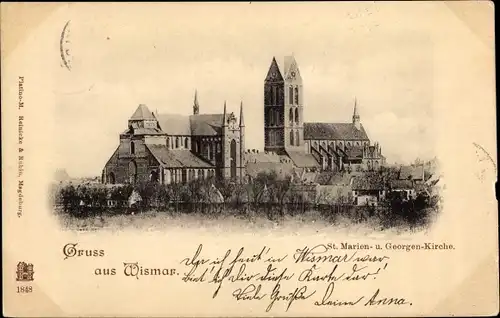 Platino-M. Reinicke & Rubin, Magdeburg.
St. Marien- u. Georgen-Kirche.
Gruss
aus Wismar.
1848
Da ich heut' in Wismar war
ich Dir diese Karte dar!
Viele Grüße Deine Anna.